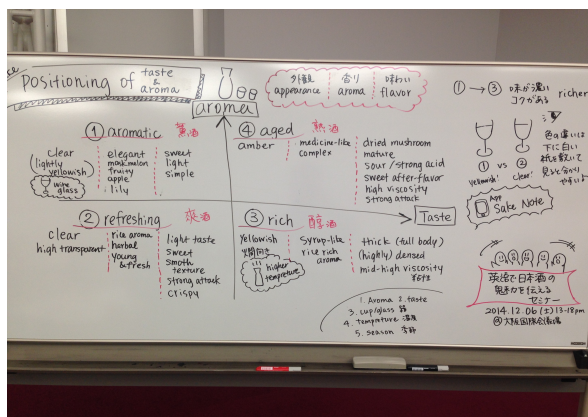 Positioning of taste & aroma
外観 香り 味わい
appearance aroma flavor
aroma
Taste
① aromatic 薫酒
clear
(lightly
yellowish)
wine
glass
elegant
maskmelon
fruity
apple
lily
sweet
light
simple
④ aged 熟酒
amber
medicine-like
complex
dried mushroom
mature
sour/strong acid
sweet after-flavor
high viscosity
strong attack
② refreshing 爽酒
clear
high transparent
rice aroma
herbal
young
& fresh
light taste
sweet
smoth
texture
strong attack
crispy
③ rich 醇酒
yellowish
燗向き
higher
tempreture
syrup-like
rice rich
aroma
thick (full body)
(highly) densed
mid-high viscosity
粘性
1. Aroma 2. taste
3. cup/glass 器
4. tempreture 温度
5. season 季節
①→③ 味が濃い richer
コクがある
① vs ②
yellowish! clear!
色の違いは
下に白い
紙を敷いて
見ると分かり
やすいよ
App
Sake Note
英語で日本酒の
魅力を伝える
セミナー
2014.12.06 (土) 13-18pm
@大阪国際会議場